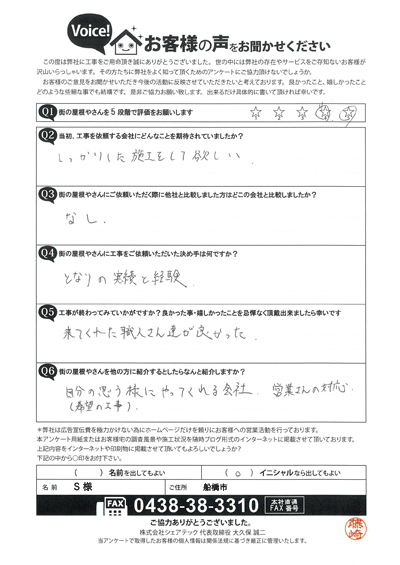 Voice!
お客様の声をお聞かせください
この度は弊社に工事をご用命頂き誠にありがとうございました。世の中には弊社の存在やサービスをご存知ないお客様が
沢山いらっしゃいます。その方たちに弊社をよく知って頂くためのアンケートにご協力頂けないでしょうか。
お客様のご意見をお聞かせいただき今後の活動に反映させていただきたいと考えております。良かったこと、嬉しかったこと
どのような些細な事でも結構です。是非ご協力お願い致します。出来るだけ具体的に書いて頂ければ幸いです。
Q1 街の屋根やさんを5段階で評価をお願いします
☆ ☆ ☆ ☆ ☆
Q2 当初、工事を依頼する会社にどんなことを期待されていましたか?
しっかりした施工をして欲しい.
Q3 街の屋根やさんにご依頼いただく際に他社と比較しました方はどこの会社と比較しましたか?
なし.
Q4 街の屋根やさんに工事をご依頼いただいた決め手は何ですか?
となりの実績と経験.
Q5 工事が終わってみていかがですか?良かった事・嬉しかったことを忌憚なく頂戴出来ましたら幸いです
来てくれた職人さん達が良かった.
Q6 街の屋根やさんを他の方に紹介するとしたらなんと紹介しますか?
自分の思う様にやってくれる会社. 営業さんの対応.
(希望の工事).
*弊社は広告宣伝費を極力かけない為にホームページだけを頼りにお客様への営業活動を行っております。
本アンケート用紙またはお客様宅の調査風景や施工状況を随時ブログ形式のインターネットに掲載させて頂いております。
上記内容をインターネットや印刷物に掲載させて頂いてもよろしいでしょうか?
下記の中から○印をお付下さい。
( )名前を出してもよい ( ○ )イニシャルなら出してもよい
名前 S 様 ご住所 船橋市
FAX 0438-38-3310 本社直通 FAX番号
ご協力ありがとうございました。
株式会社シェアテック 代表取締役 大久保 誠二
当アンケートで取得したお客様の個人情報は関係法規に基づき厳正に管理いたします。
篠崎